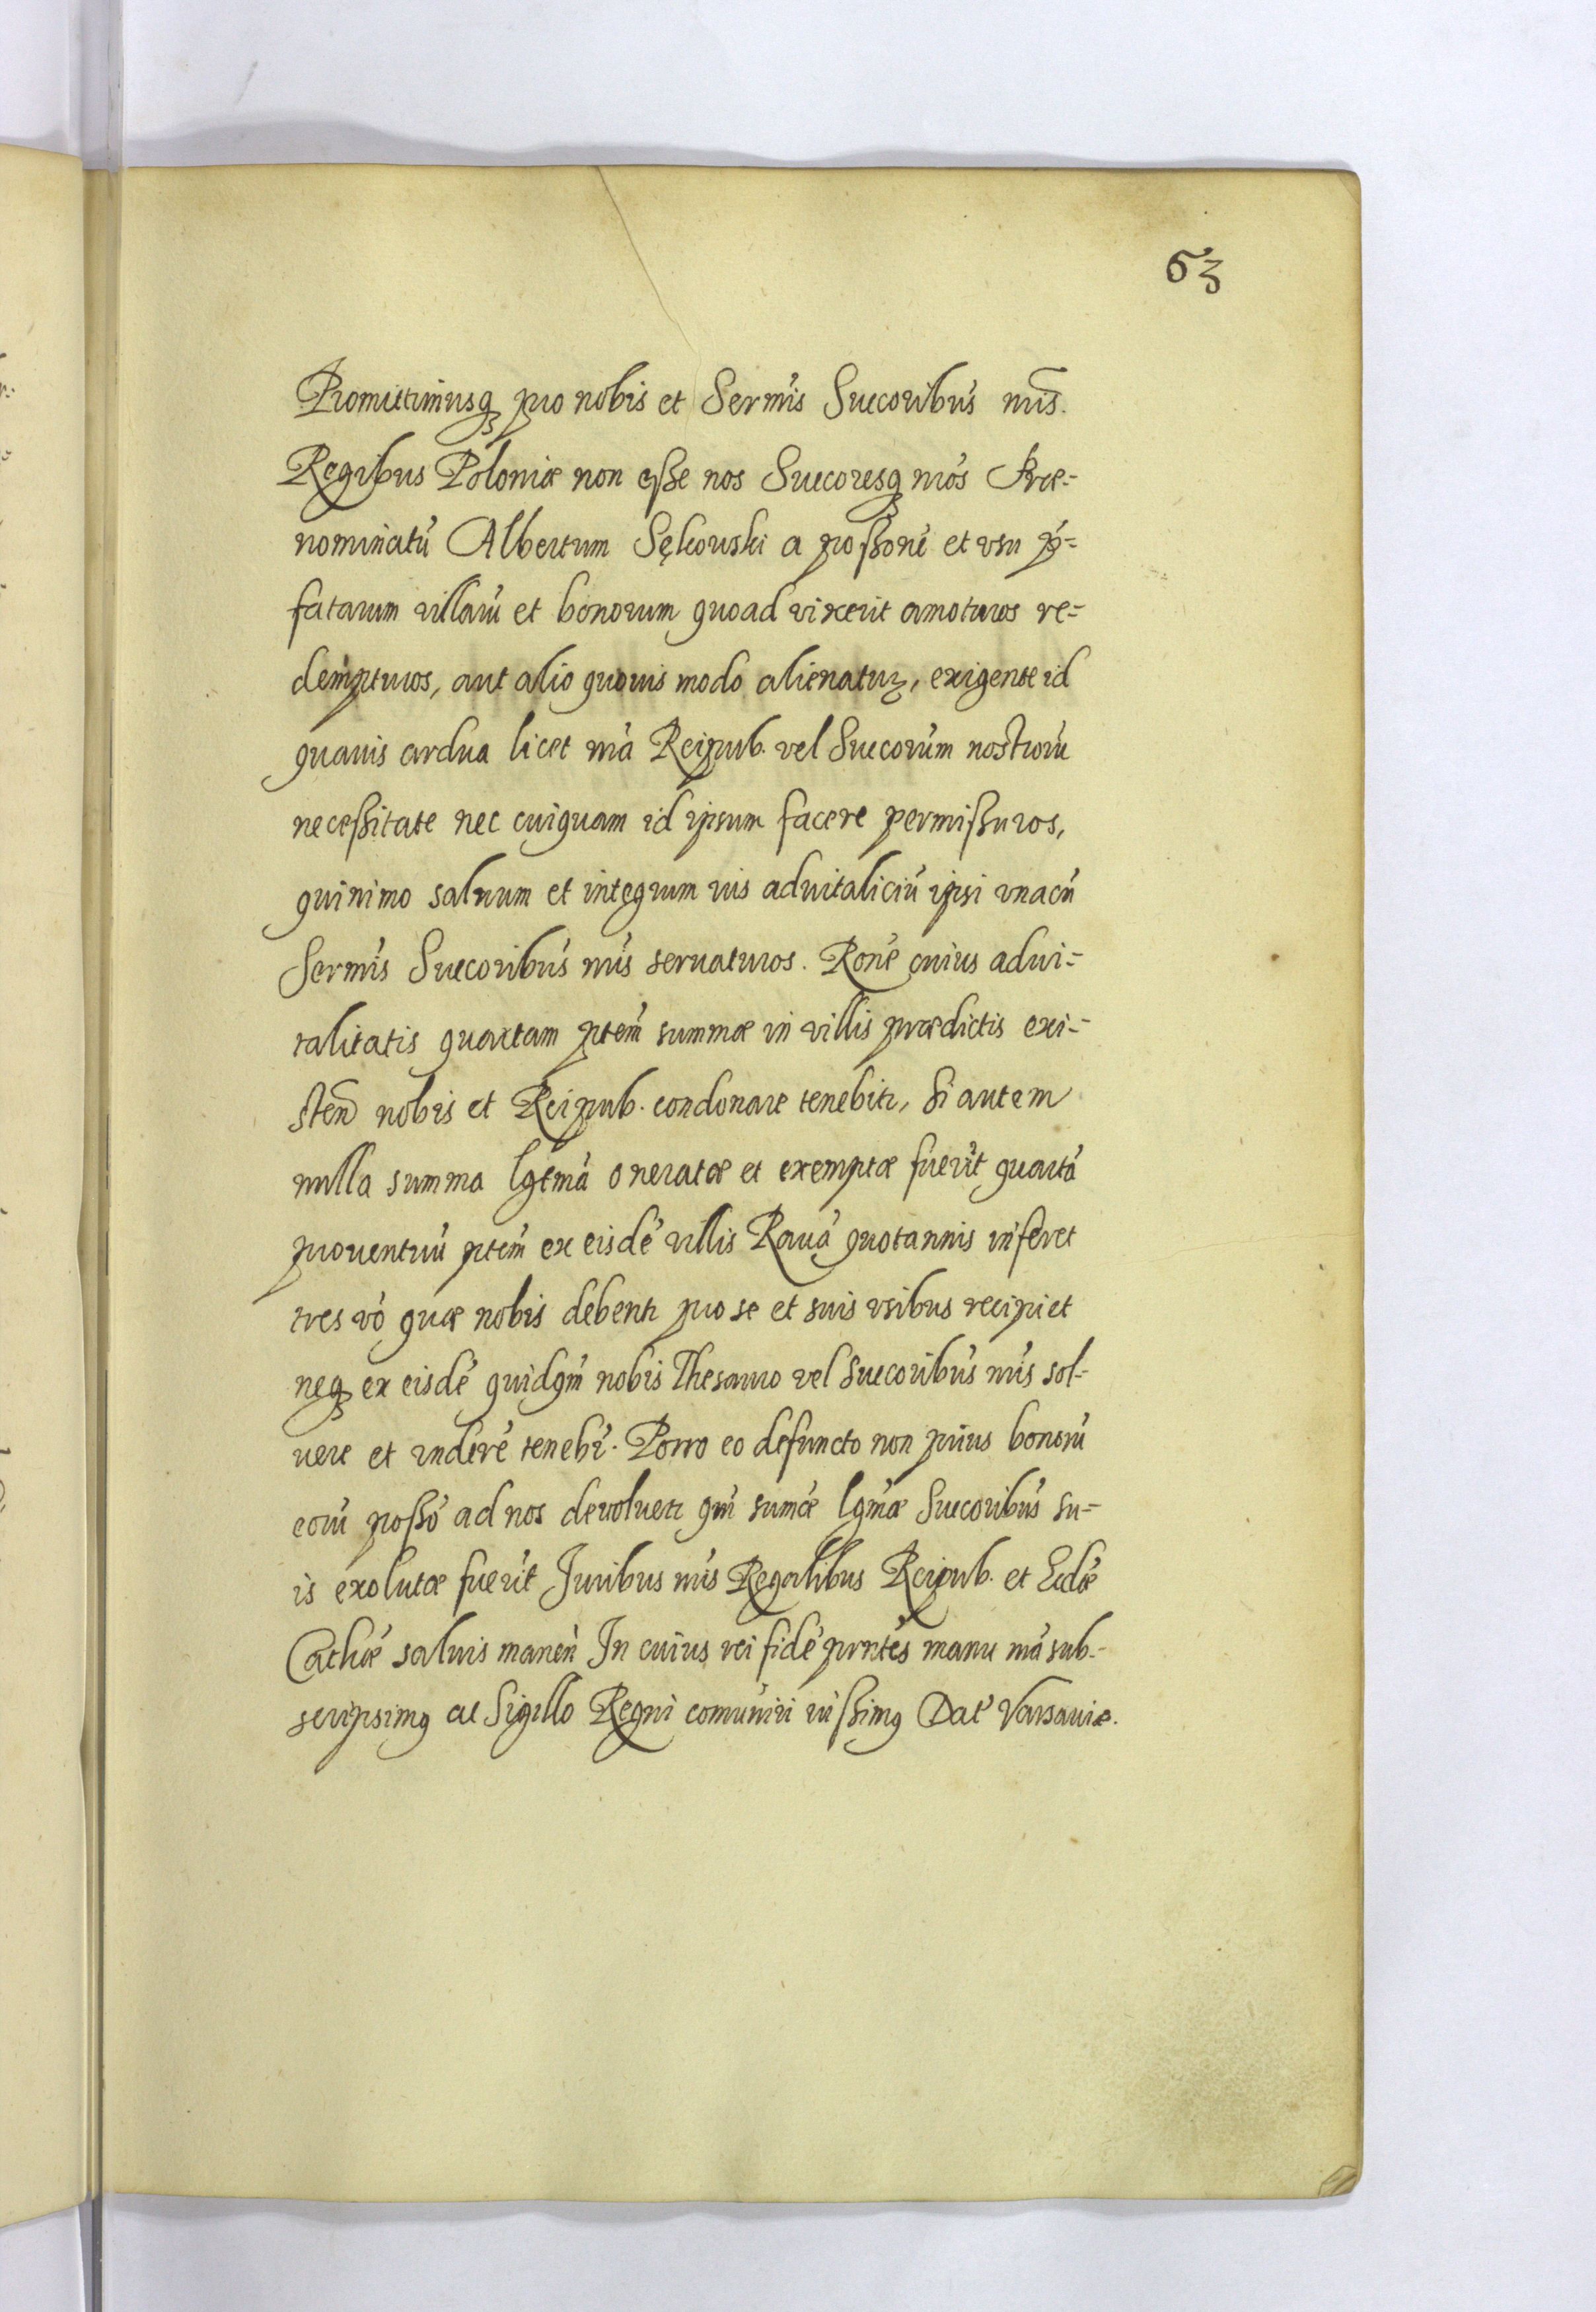 63
Promittimusq₃ pro nobis et Sermis Succoribus nris.
Regibus Poloniæ non esse nos Succoresq₃ nros Præ=
nominatū Albertum Sękowski a possone et vsu p=
fatarum villarū et bonorum quoad vixerit amoturos re=
dempturos, aut alio quouis modo alienatur, exigente id
quauis ardua licet nra Reipub. vel Succorum nostrorū
necessitate nec cuiquam id ipsum facere permissuros,
quinimo saluum et integrum ius aduitaliciū ipsi vnacū
Sermis Succoribus nris seruaturos. Rone cuius adui=
talitatis quartam ptem summæ in villis prædictis exi=
sten nobis et Reipub. condonare tenebitr, Si autem
nulla summa lgtma oneratæ et exemptæ fuerit quartā
prouentuū ptem ex eisdē villis Rauā quotannis inferet
tres vo quæ nobis debentr pro se et suis vsibus recipiet
neq₃ ex eisdē quidqm nobis Thesauro vel Succoribus nris sol=
uere et rndere tenebr. Porro eo defuncto non prius bonorū
eorū posso ad nos deuoluetr qm sumæ lgmæ Succoribus su=
is exolutæ fuerit Juribus nris Regalibus Reipub. et Eccliæ
Cathcæ saluis manen In cuius rei fidē prntes manu nra sub=
scripsimq ac Sigillo Regni comuniri iussimq Dat Varsauiæ.